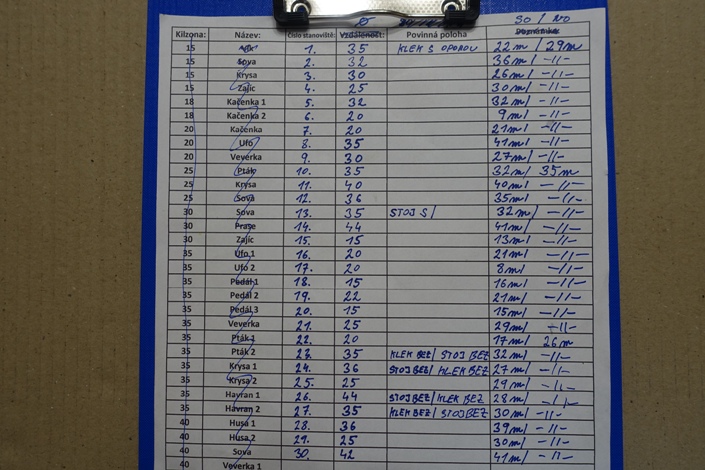 Ø 30 / NO
Killzona: Název: Číslo stanoviště: Vzdálenost: Povinná poloha Poznámka:
15 1. 35 KLEK S OPOROU 22m / 29m
15 Sova 2. 32 36m / -//-
15 Krysa 3. 30 26m / -//-
15 Zajíc 4. 25 30m / -//-
18 Kačenka 1 5. 32 32m / -//-
18 Kačenka 2 6. 20 9m / -//-
20 Kačenka 7. 20 21m / -//-
20 Ufo 8. 35 41m / -//-
20 Veverka 9. 30 27m / -//-
25 Pták 10. 35 32m / 35m
25 Krysa 11. 40 40m / -//-
25 Sova 12. 36 35m / -//-
30 Sova 13. 35 STOJ S / 32m / -//-
30 Prase 14. 44 41m / -//-
30 Zajíc 15. 15 13m / -//-
35 Ufo 1 16. 20 21m / -//-
35 Ufo 2 17. 20 8m / -//-
35 Pedál 1 18. 15 16m / -//-
35 Pedál 2 19. 22 21m / -//-
35 Pedál 3 20. 15 15m / -//-
35 Veverka 21. 25 29m -//-
35 Pták 1 22. 20 17m 26m
35 Pták 2 23. 35 KLEK BEZ / STOJ BEZ 32m / -//-
35 Krysa 1 24. 36 STOJ BEZ / KLEK BEZ 27m / -//-
35 Krysa 2 25. 25 29m -//-
35 Havran 1 26. 44 STOJ BEZ / KLEK BEZ 28m / -//-
35 Havran 2 27. 35 KLEK BEZ / STOJ BEZ 30m / -//-
40 Husa 1 28. 36 39m / -//-
40 Husa 2 29. 25 30m / -//-
40 Sova 30. 42 41m / -//-
40 Veverka 1